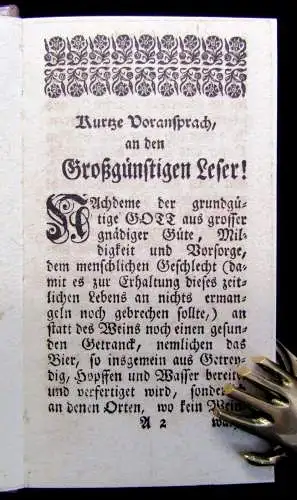 Kurtze Voransprach,
an den
Großgünstigen Leser!
NAchdeme der grundgü-
tige GOTT aus grosser
gnädiger Güte, Mil-
digkeit und Vorsorge,
dem menschlichen Geschlecht (da-
mit es zur Erhaltung dieses zeit-
lichen Lebens an nichts erman-
geln noch gebrechen sollte,) an
statt des Weins noch einen gesun-
den Getranck, nemlichen das
Bier, so insgemein aus Getrey-
dig, Hopffen und Wasser bereit
und verfertiget wird, sonder
an denen Orten, wo kein Wein
A 2